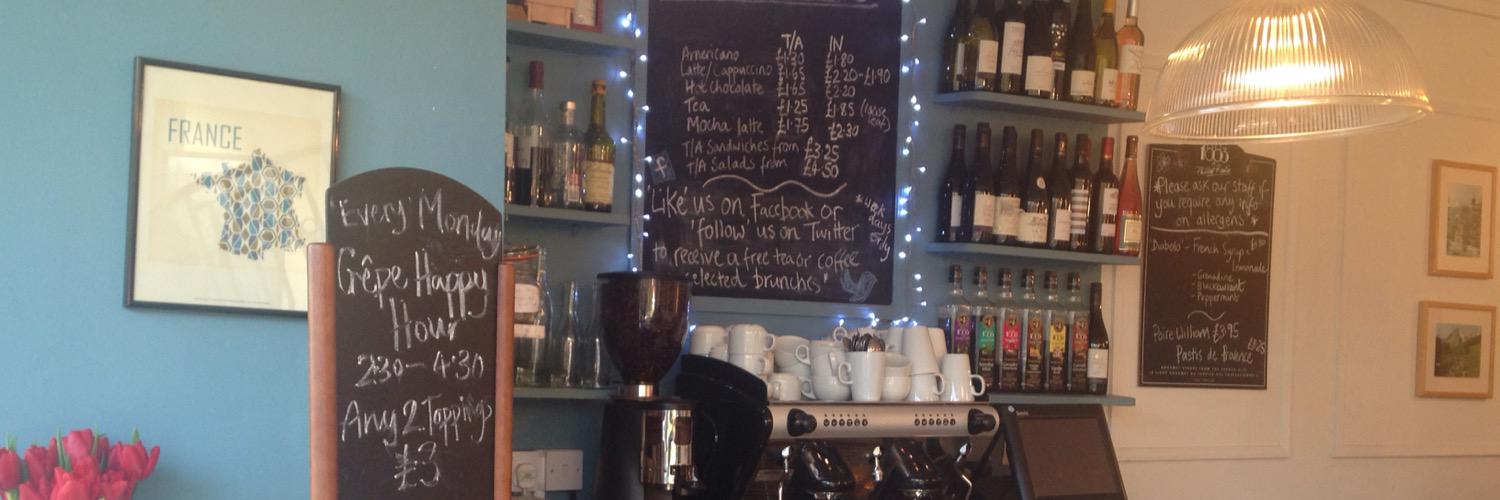 FRANCE
Every Monday
Crêpe Happy
Hour
2:30 - 4:30
Any 2 Toppings
£3
T/A IN
Americano £1.30 £1.80
Latte/Cappuccino £1.65 £2.20-£1.90
Hot Chocolate £1.65 £2.20
Tea £1.25 £1.85 (loose leaf)
Mocha latte £1.75 £2.30
T/A Sandwiches from £3.25
T/A Salads from £4.50
Like us on Facebook or
'follow' us on Twitter
to receive a free tea or coffee
selected brunchs"
*week days only
1883
*Please ask our staff if
you require any info
on allergens.*
'Diabolo' - French Syrup &
Lemonade
- Grenadine
- Blackcurrant
- Peppermint
Poire William £3.95
Pastis de Provence